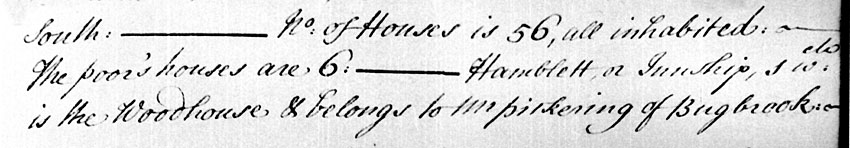 South: ——— No: of Houses is 56, all inhabited:
The poor's houses are 6: ——— Hamblett, or Innship, 1 wch:
is the Woodhouse & belongs to Mr pickering of Bugbrook: